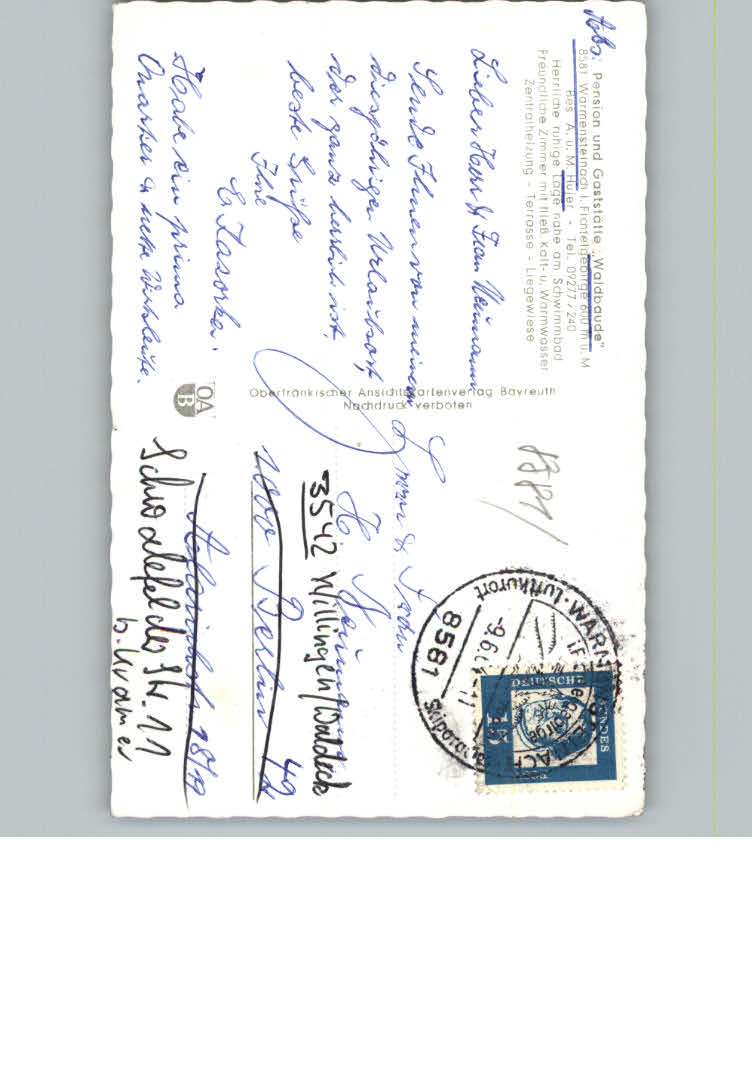 Abs: Pension und Gaststätte „Waldbaude"
8581 Warmensteinach i. Fichtelgebirge 600 m ü. M
Bes. A. u. M. Hujer - Tel. 09277 / 240
Herrliche ruhige Lage nahe am Schwimmbad
Freundliche Zimmer mit fließ. Kalt- u. Warmwasser
Zentralheizung - Terrasse - Liegewiese
Lieber Herr & Frau Neumann
Sende Ihnen von meinem
diesjährigen Urlaubsort
der ganz herrlich ist.
beste Grüße
Ihre
E
Habe ein prima
Quartier & nette Wirtsleute.
Oberfränkischer Ansichtskartenverlag Bayreuth
Nachdruck verboten
OA
B
8581
Luftkurort
Skiparadies
8581
9.6.
DEUTSCHE BUNDESPOST
15
Herr & Frau
H. Neumann
3542 Willingen/Waldeck
1000 Berlin 49
18/19
Schwalefelder Str. 11
b. Kramer